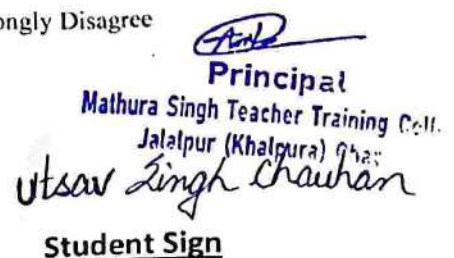 ongly Disagree
Principal
Mathura Singh Teacher Training Coll.
Jalalpur (Khalpura)
Utsav Singh Chauhan
Student Sign